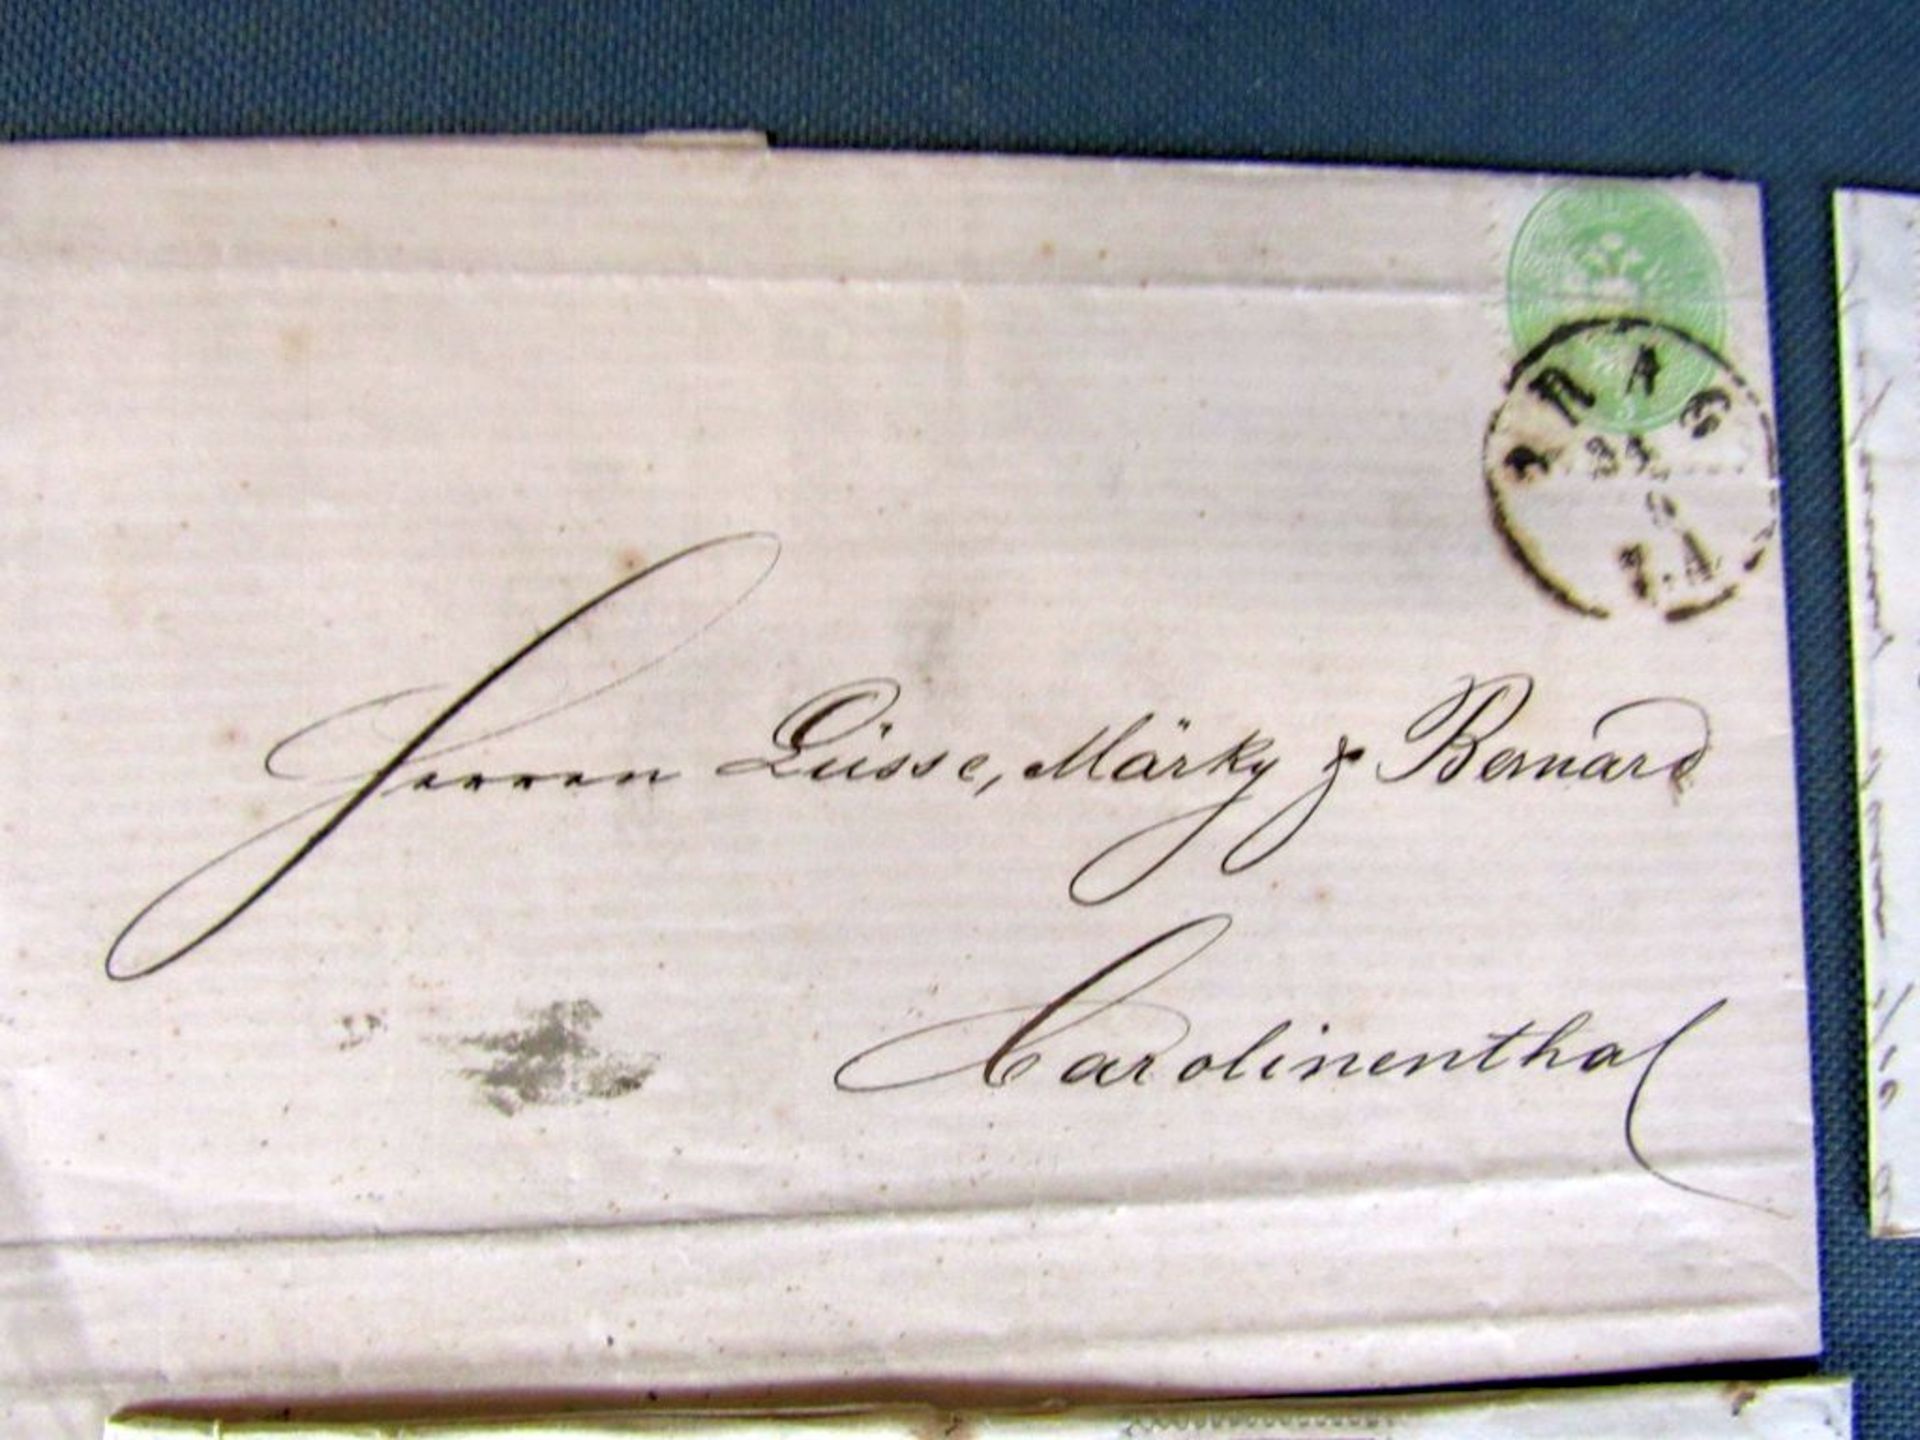 PRAG
Herren Lüsse, Märky & Bernard
Carolinenthal